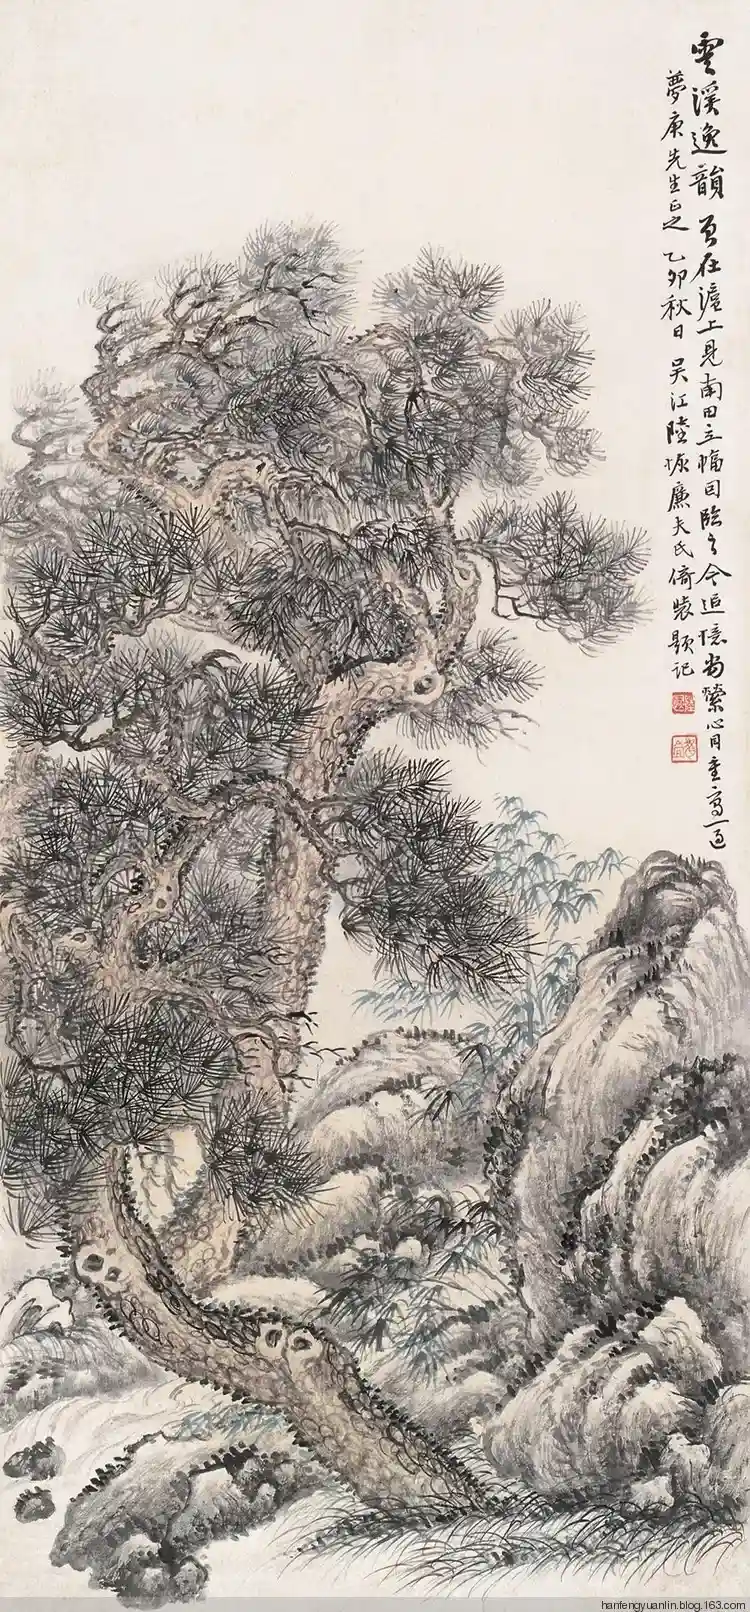 雲溪逸韻 曾在滬上見南田立幅因臨之今追憶尚縈心目重寫一過
夢庚先生正之 乙卯秋日 吳江陸恢廉夫氏倚裝題記
hanfengyuanlin.blog.163.com